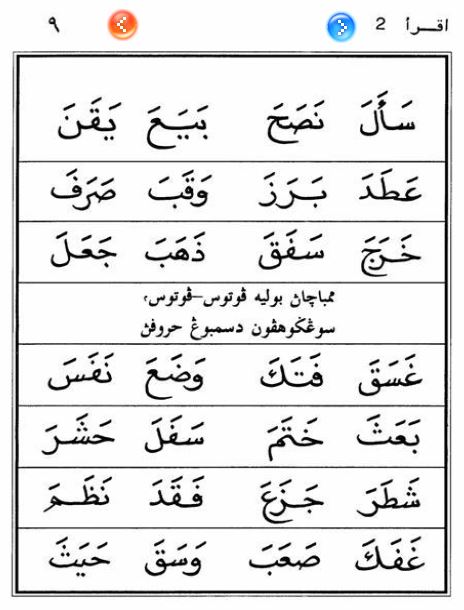 اقرأ 2 ٩
سَأَلَ نَصَحَ بَيَعَ يَقَنَ
عَطَدَ بَرَزَ وَقَبَ صَرَفَ
خَرَجَ سَفَقَ ذَهَبَ جَعَلَ
ممباچاڽ بوليه ڤوتوس–ڤوتوس،
سوڠڬوهڤون دسمبوڠ حروفڽ
غَسَقَ فَتَكَ وَضَعَ نَفَسَ
بَعَثَ خَتَمَ سَفَلَ حَشَرَ
شَطَرَ جَزَعَ فَقَدَ نَظَمَ
غَفَكَ صَعَبَ وَسَقَ حَيَثَ